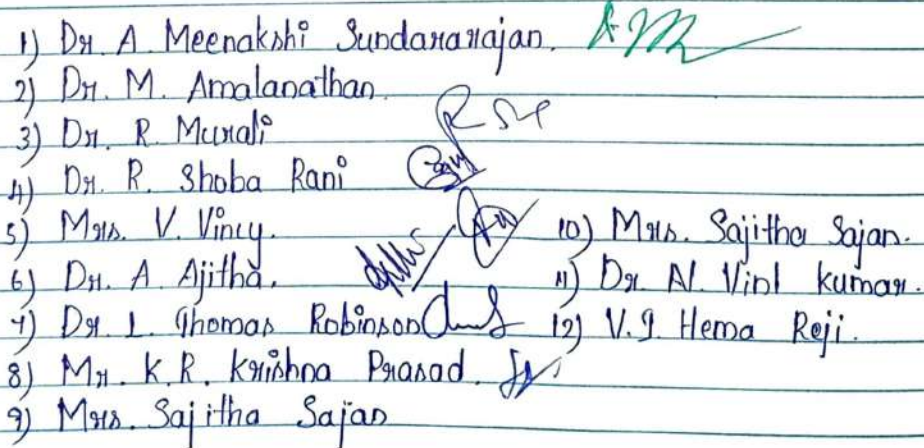 1) Dr. A Meenakshi Sundararajan.
2) Dr. M. Amalanathan
3) Dr. R Murali
4) Dr. R. Shoba Rani
5) Mrs. V. Vincy.
6) Dr. A Ajitha.
7) Dr. L. Thomas Robinson
8) Mr. K.R. Krishna Prasad.
9) Mrs. Sajitha Sajan
10) Mrs. Sajitha Sajan.
11) Dr. Al. Vinl kumar.
12) V.I. Hema Reji.